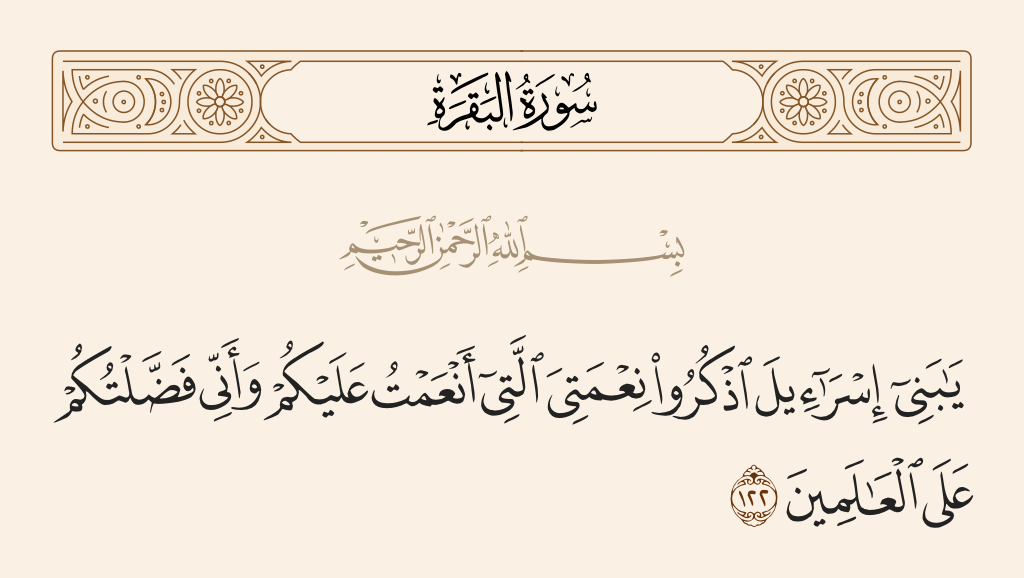 سُورَةُ البَقَرَةِ
بِسْمِ ٱللَّهِ ٱلرَّحْمَٰنِ ٱلرَّحِيمِ
يَٰبَنِىٓ إِسْرَٰٓءِيلَ ٱذْكُرُوا۟ نِعْمَتِىَ ٱلَّتِىٓ أَنْعَمْتُ عَلَيْكُمْ وَأَنِّى فَضَّلْتُكُمْ
عَلَى ٱلْعَٰلَمِينَ ١٢٢